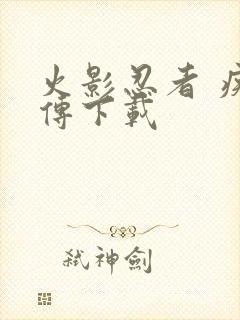 火影忍者 疾
傳下載
弒神劍